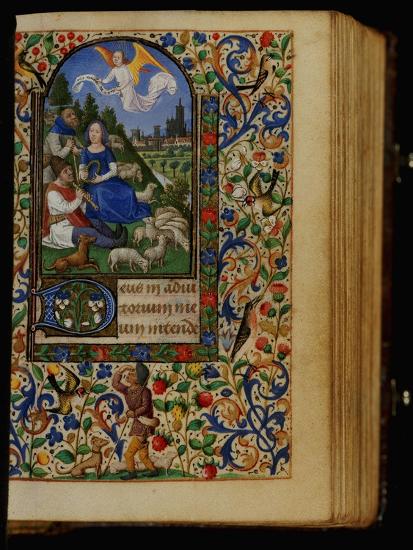 Deus in adiu
torium me
um intende